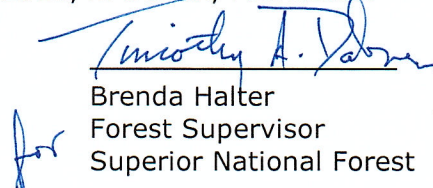 Timothy A. Dabney
Brenda Halter
for Forest Supervisor
Superior National Forest